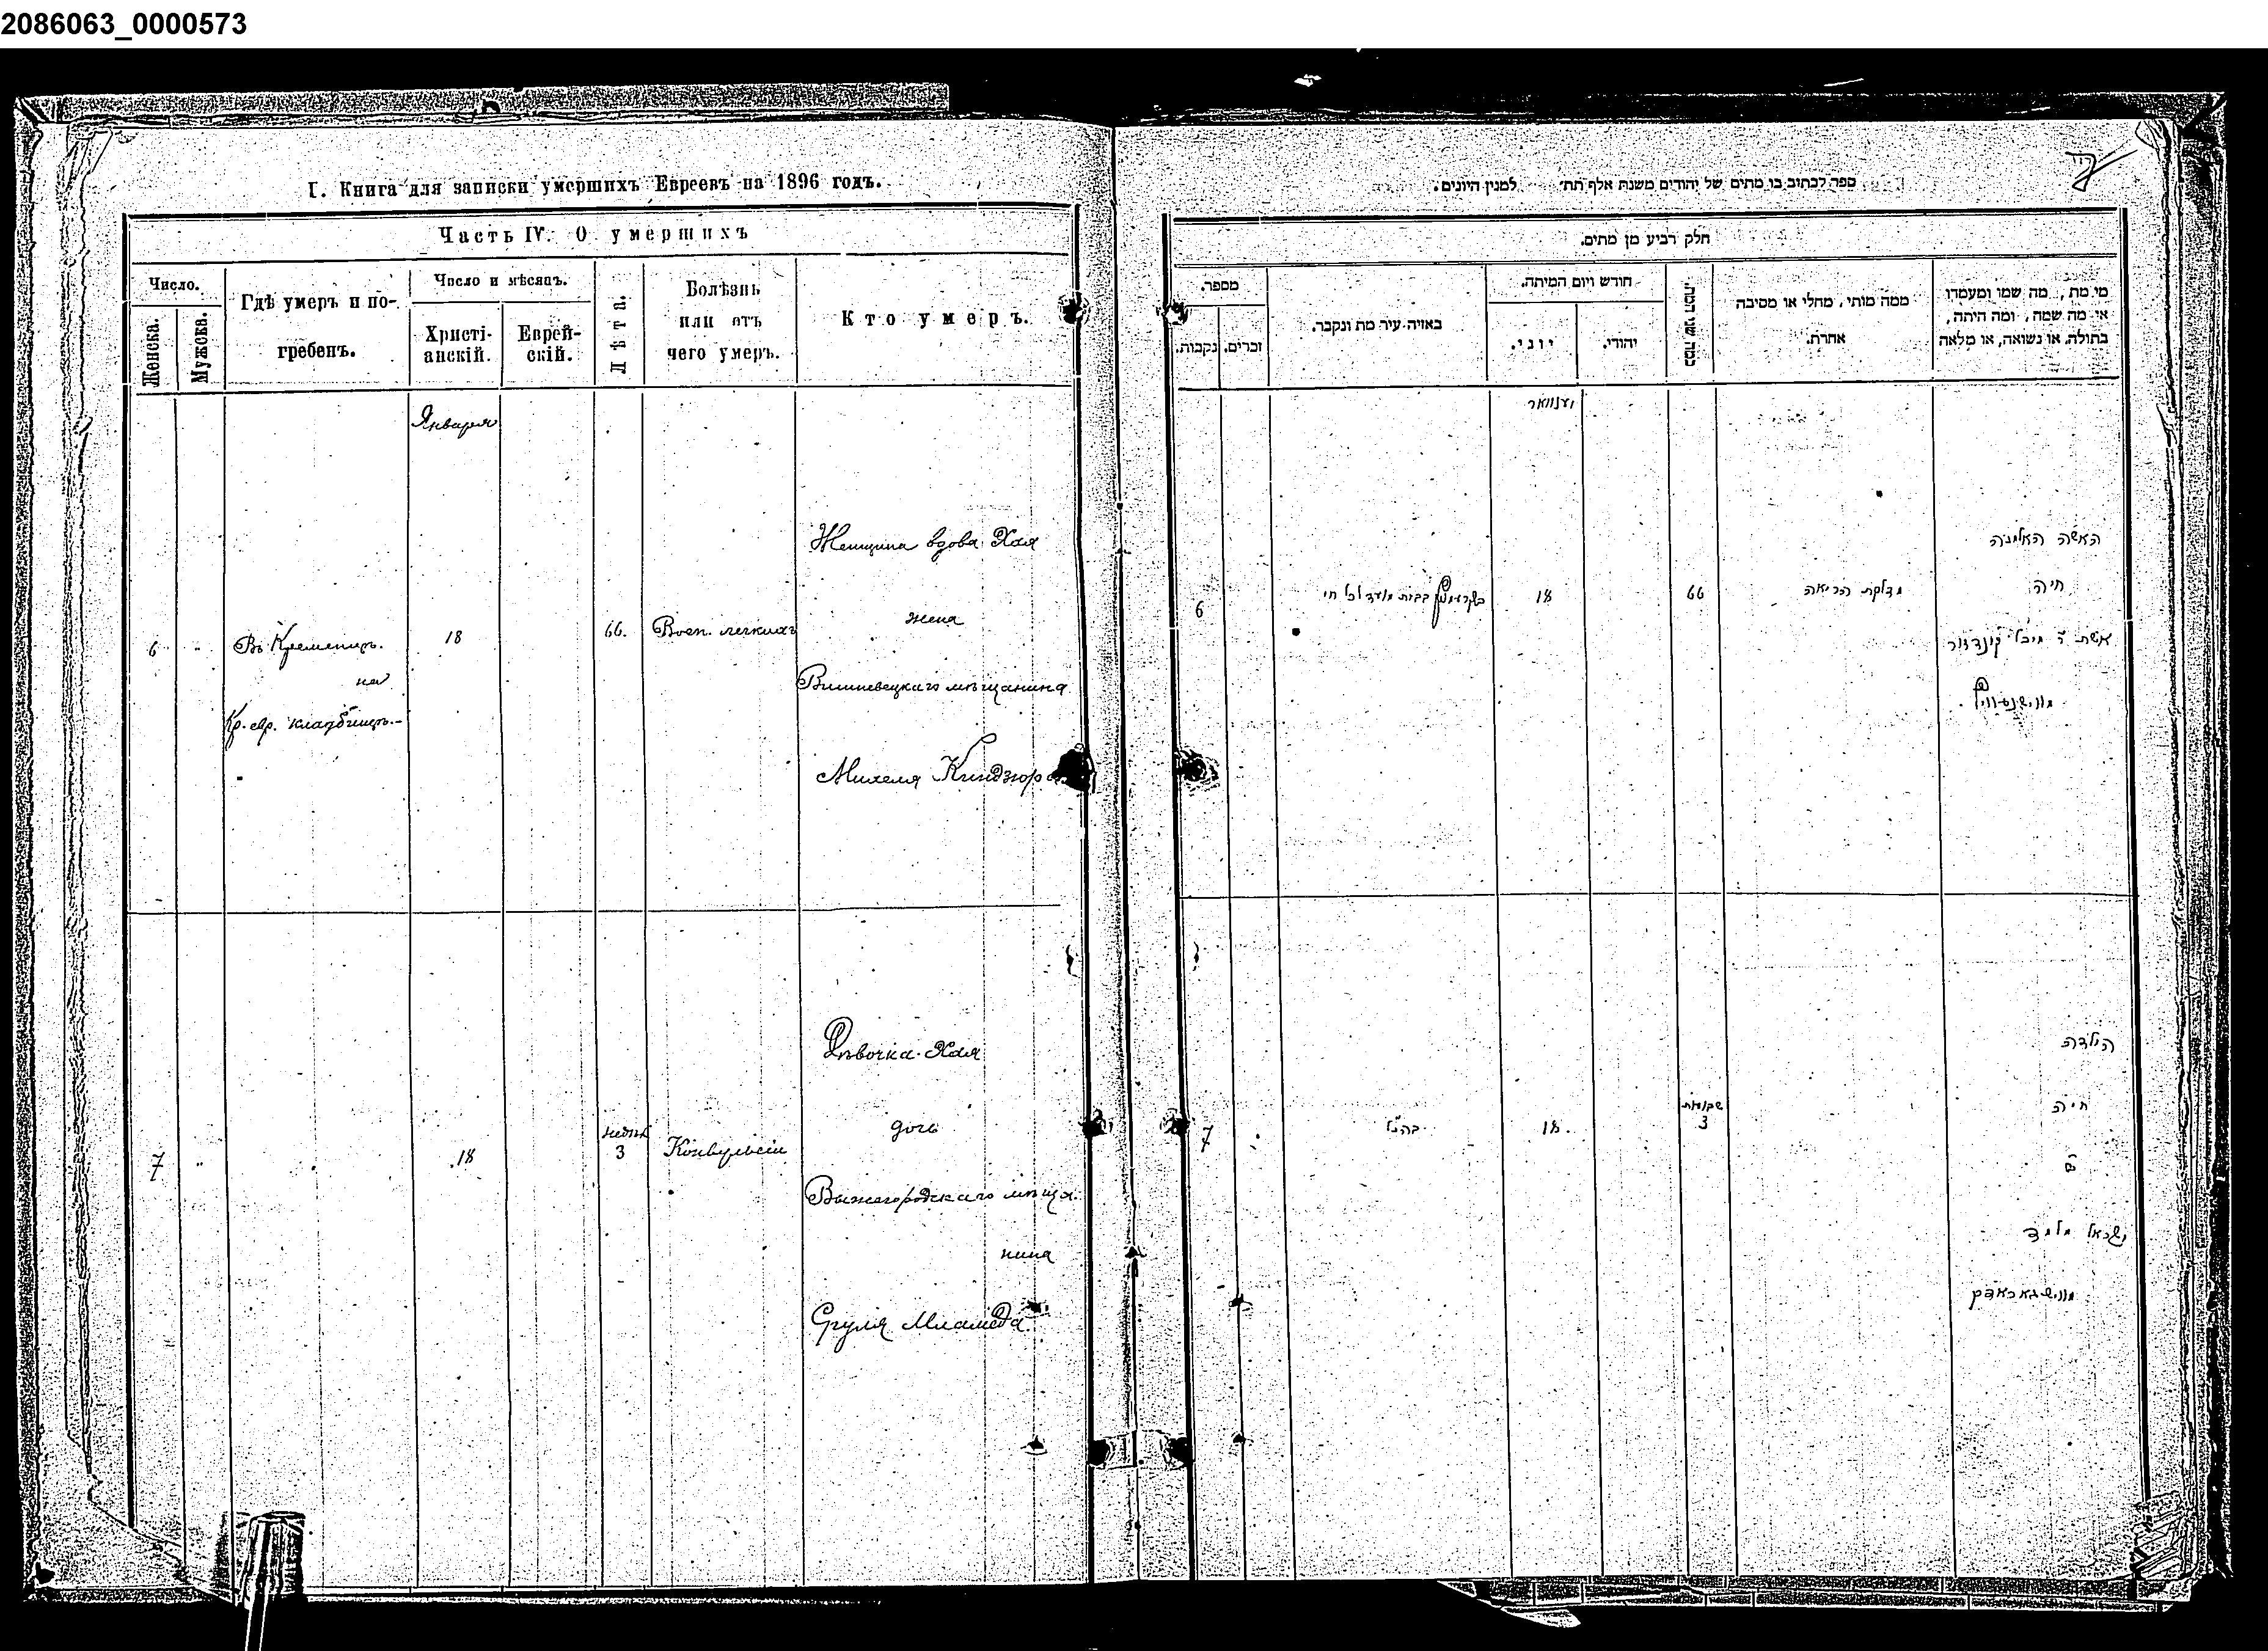 2086063_0000573
I. Книга для записки умершихъ Евреевъ на 1896 годъ.
Часть IV. О умершихъ
Число.
Женска.
Мужска.
Гдѣ умеръ и по-
гребенъ.
Число и мѣсяцъ.
Христі-
анскій.
Еврей-
скій.
Лѣта.
Болѣзнь
или отъ
чего умеръ.
Кто умеръ.
Января
6
Въ Кременцѣ.
на
Кр. евр. кладбищѣ.-
18
66.
Восп. легкихъ
Женщина вдова Хая
жена
Вишневецкаго мѣщанина
Михеля Киндзюра
7
18
недѣл
3
Конвульсіи
Дѣвочка Хая
дочь
Вышегородскаго мѣща
нина
Сруля Мламеда
ספר לכתוב בו מתים של יהודים משנת אלף תת׳ למנין היונים.
חלק רביע מן מתים.
מספר.
נקבות.
זכרים.
באויה עיר מת ונקבר.
חודש ויום המיתה.
יוני.
יהודי.
כמה שני המת.
ממה מותי, מחלי או מסיבה
אחרת.
מי מת, מה שמו ומעמדו
אי מה שמה, ומה היתה,
בתולה, או נשואה, או מלאה
יענוואר
6
18
66
דלקת הריאה
האשה האלמנה
חיה
אשת ר מיכל קינדזור
7
בהנ״ל
18.
שבועות
3
הילדה
חיה
ישראל מלמד